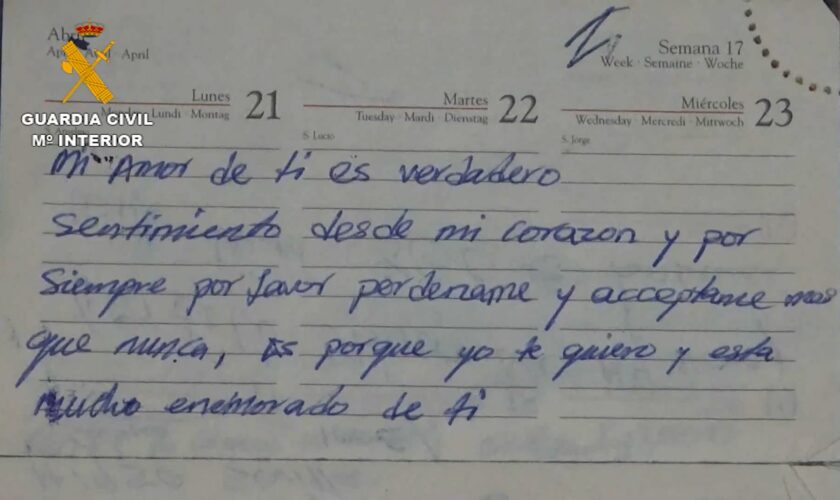 Abril
April · Avril · April
Semana 17
Week · Semaine · Woche
Lunes 21
Monday · Lundi · Montag
Martes 22
Tuesday · Mardi · Dienstag
Miércoles 23
Wednesday · Mercredi · Mittwoch
S. Lucio
S. Jorge
GUARDIA CIVIL
Mº INTERIOR
Mi Amor de ti es verdadero
Sentimiento desde mi corazon y por
Siempre por favor perdename y acceptame mas
que nunca, es porque yo te quiero y esta
mucho enemorado de ti